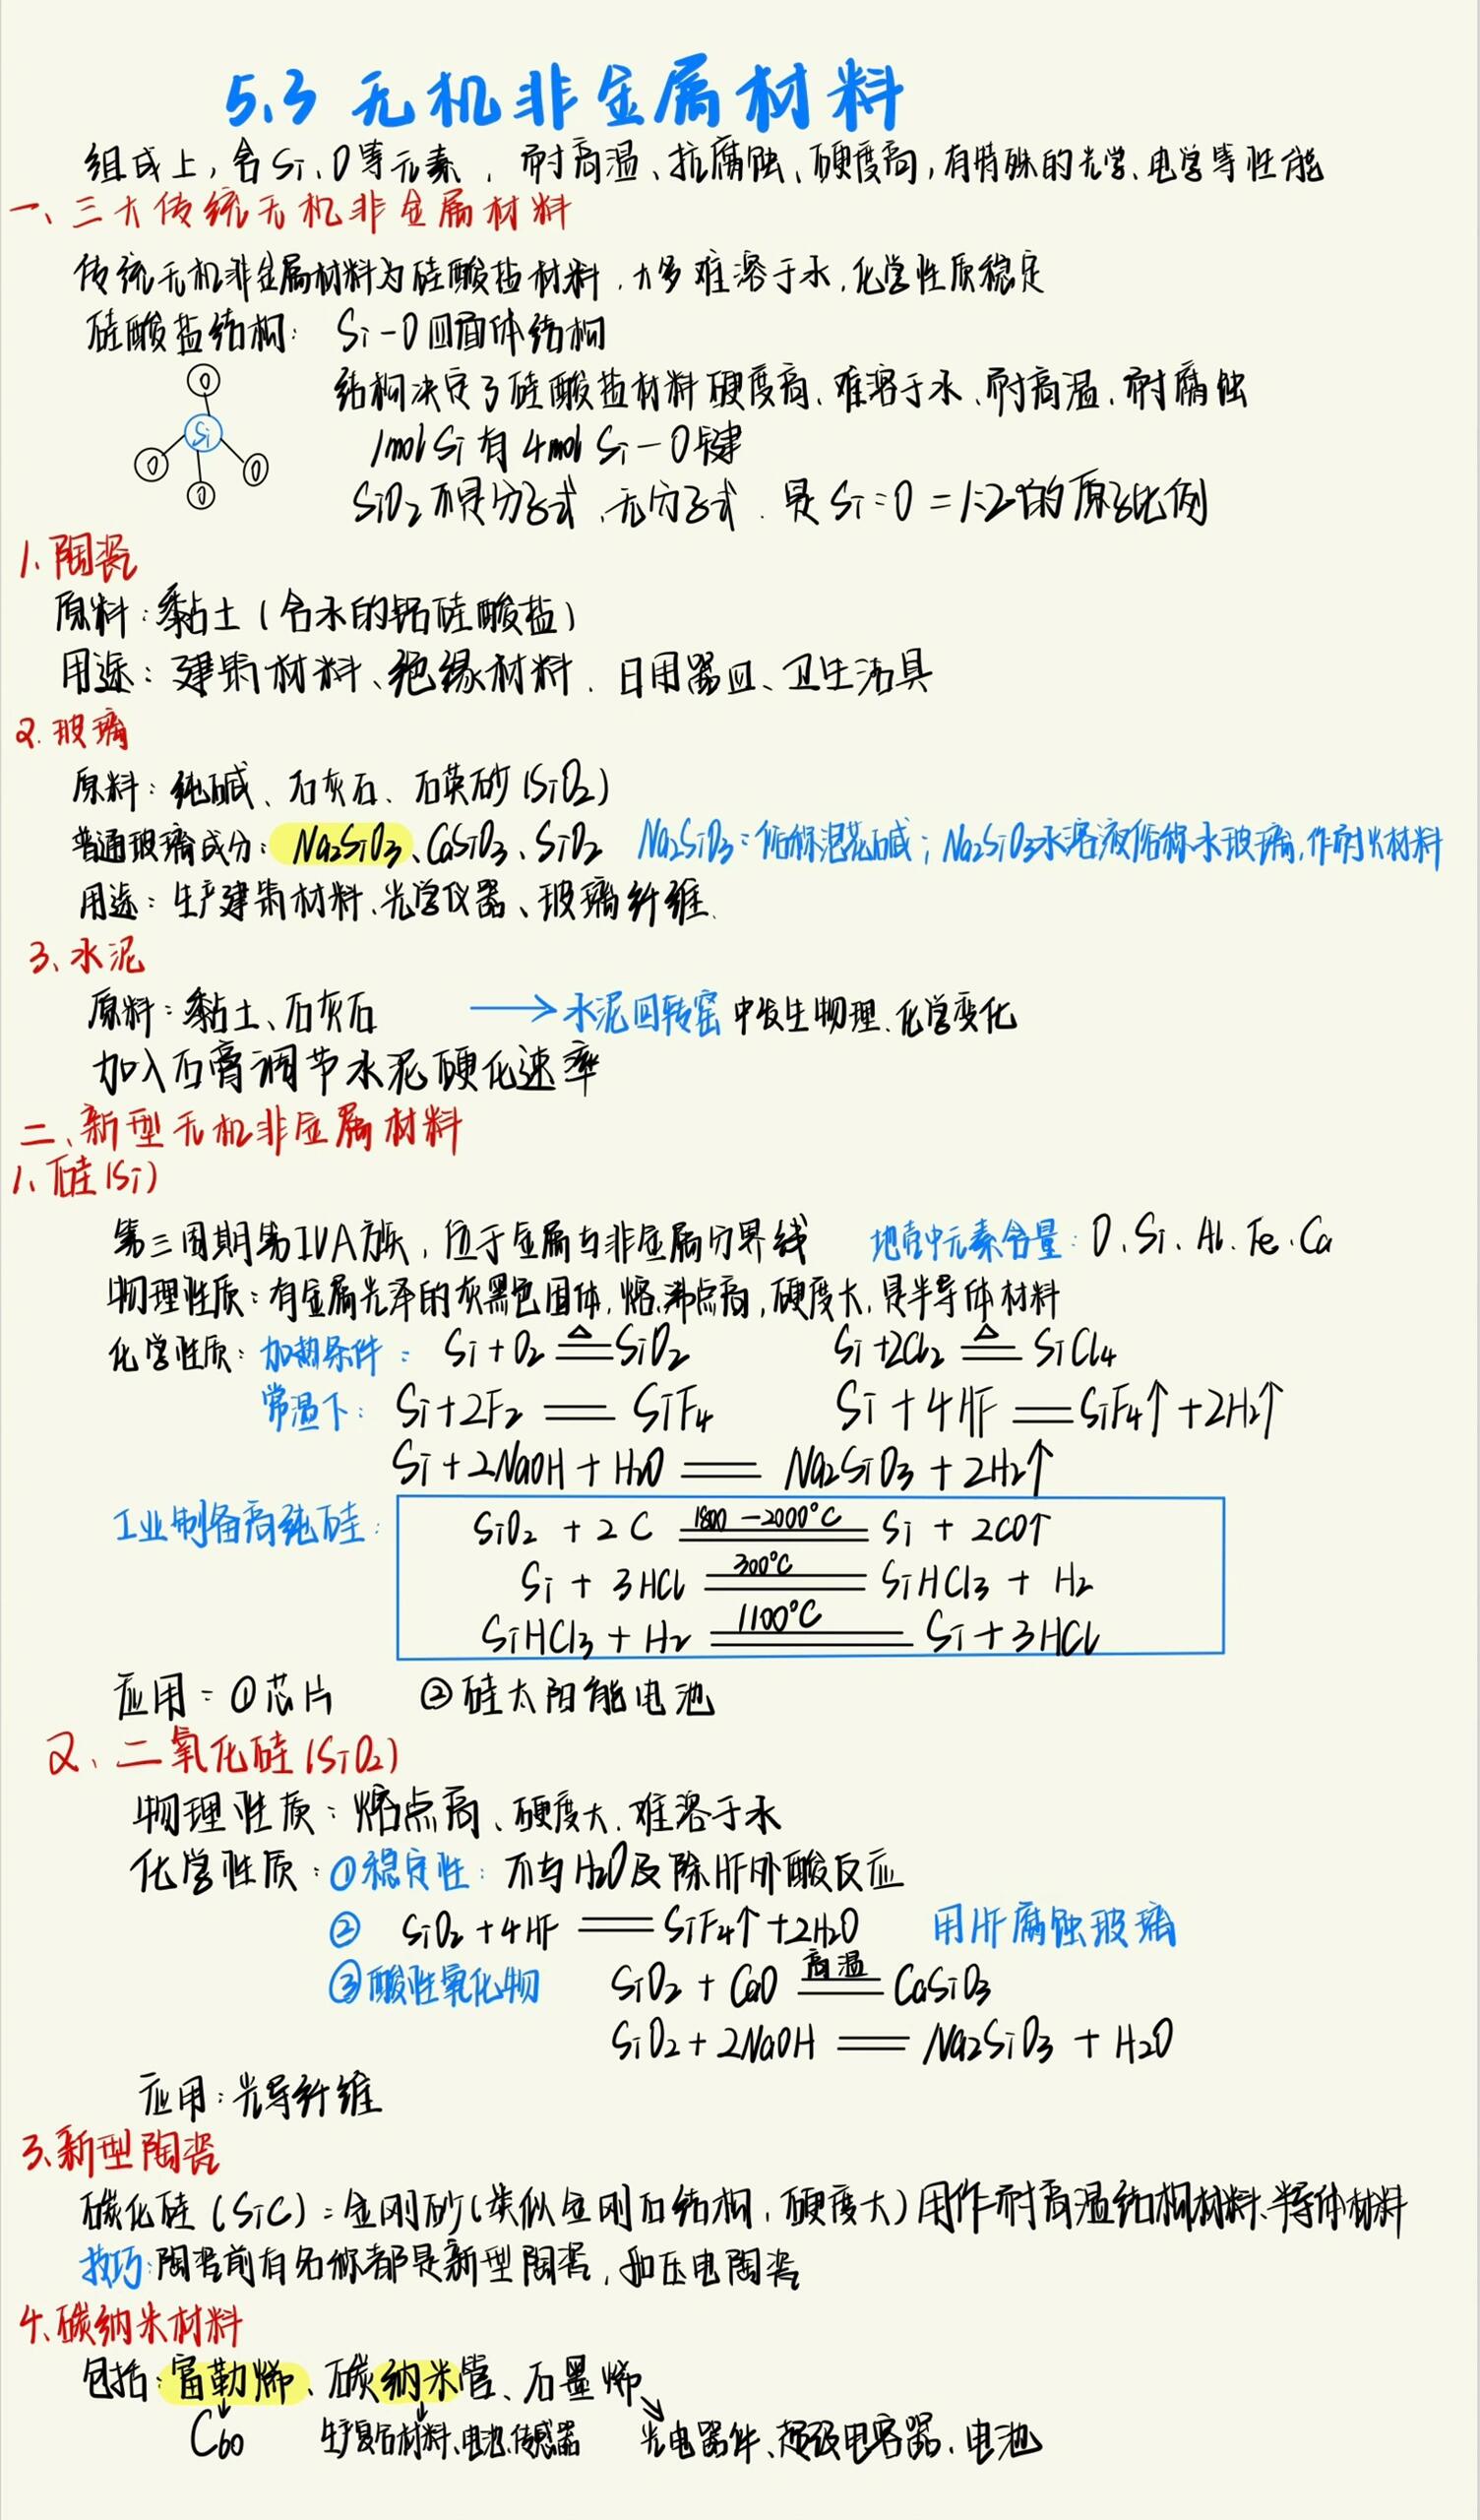 5.3 无机非金属材料
组成上，含Si、O等元素，耐高温、抗腐蚀、硬度高，有特殊的光学、电学等性能
一、三大传统无机非金属材料
传统无机非金属材料为硅酸盐材料，大多难溶于水，化学性质稳定
硅酸盐结构：Si-O四面体结构
结构决定了硅酸盐材料硬度高、难溶于水、耐高温、耐腐蚀
O
Si
O O
O
1mol Si有4mol Si-O键
SiO₂不是分子式、无分子式．是Si:O=1:2的原子比例
1、陶瓷
原料：黏土（含水的铝硅酸盐）
用途：建筑材料、绝缘材料、日用器皿、卫生洁具
2.玻璃
原料：纯碱、石灰石、石英砂（SiO₂）
普通玻璃成分：Na₂SiO₃、CaSiO₃、SiO₂ Na₂SiO₃：俗称泡花碱；Na₂SiO₃水溶液俗称水玻璃，作耐火材料
用途：生产建筑材料、光学仪器、玻璃纤维．
3、水泥
原料：黏土、石灰石 ⟶ 水泥回转窑中发生物理、化学变化
加入石膏调节水泥硬化速率
二、新型无机非金属材料
1、硅（Si）
第三周期第IVA族，位于金属与非金属分界线 地壳中元素含量：O、Si、Al、Fe、Ca
物理性质：有金属光泽的灰黑色固体，熔、沸点高，硬度大，是半导体材料
化学性质：加热条件：Si+O₂ ≜ SiO₂ Si+2Cl₂ ≜ SiCl₄
常温下：Si+2F₂ == SiF₄ Si+4HF == SiF₄↑+2H₂↑
Si+2NaOH+H₂O == Na₂SiO₃+2H₂↑
工业制备高纯硅：SiO₂+2C =1800-2000°C= Si+2CO↑
Si+3HCl =300°C= SiHCl₃+H₂
SiHCl₃+H₂ =1100°C= Si+3HCl
应用：①芯片 ②硅太阳能电池
2、二氧化硅（SiO₂）
物理性质：熔点高、硬度大、难溶于水
化学性质：①稳定性：不与H₂O及除HF外酸反应
② SiO₂+4HF == SiF₄↑+2H₂O 用HF腐蚀玻璃
③酸性氧化物 SiO₂+CaO =高温= CaSiO₃
SiO₂+2NaOH == Na₂SiO₃+H₂O
应用：光导纤维
3、新型陶瓷
碳化硅（SiC）：金刚砂（类似金刚石结构，硬度大）用作耐高温结构材料、半导体材料
技巧：陶瓷前有名称都是新型陶瓷，如压电陶瓷
4、碳纳米材料
包括：富勒烯、碳纳米管、石墨烯
C₆₀ 生产复合材料、电池、传感器 光电器件、超级电容器、电池